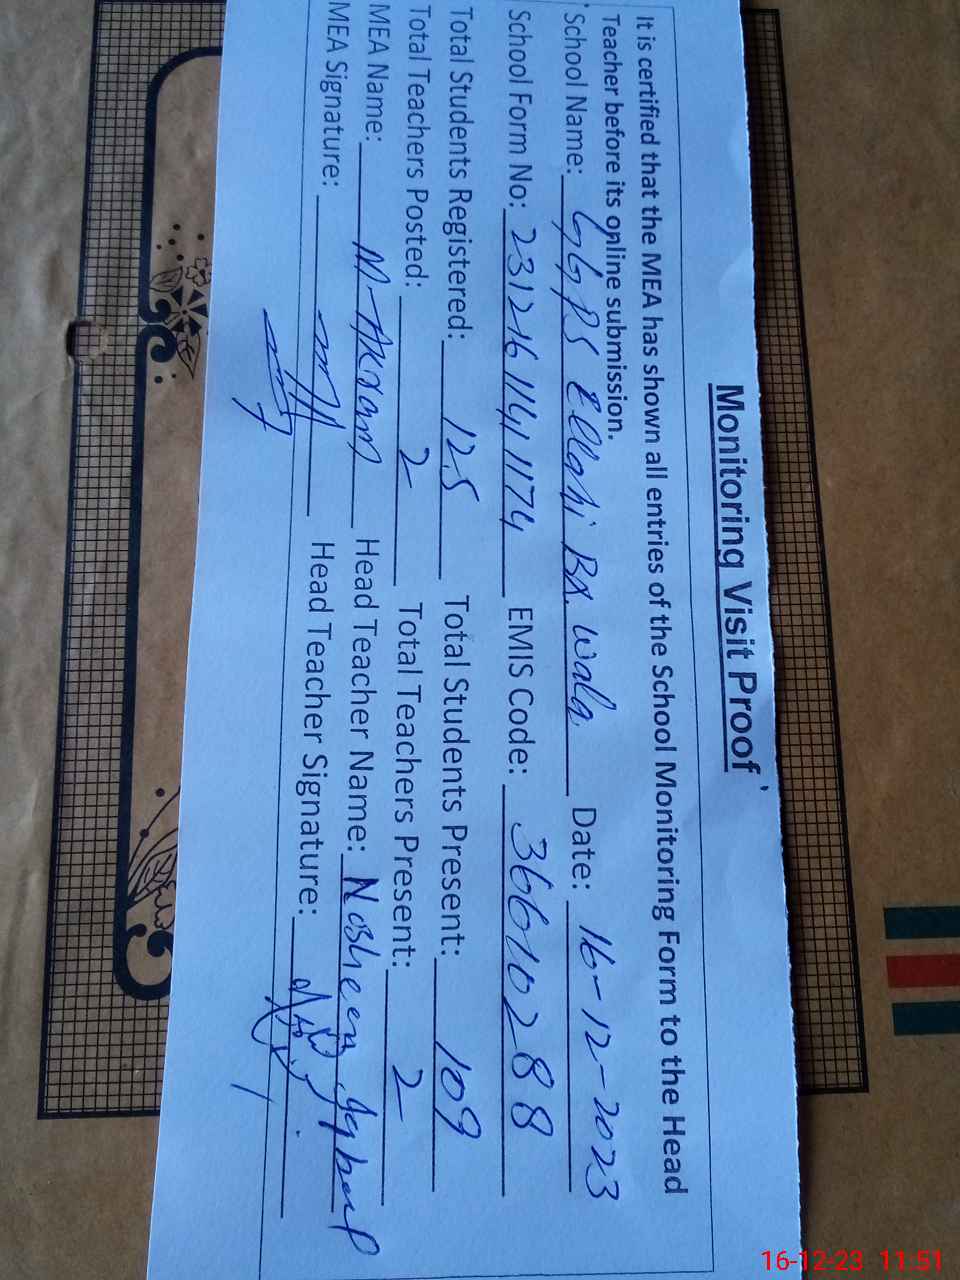 Monitoring Visit Proof
It is certified that the MEA has shown all entries of the School Monitoring Form to the Head
Teacher before its online submission.
School Name: GGPS Ellahi BX. wala Date: 16-12-2023
School Form No: 231216114141174 EMIS Code: 36610288
Total Students Registered: 125 Total Students Present: 109
Total Teachers Posted: 2 Total Teachers Present: 2
MEA Name: M-Akram Head Teacher Name: Nosheen
MEA Signature: Head Teacher Signature:
16-12-23 11:51